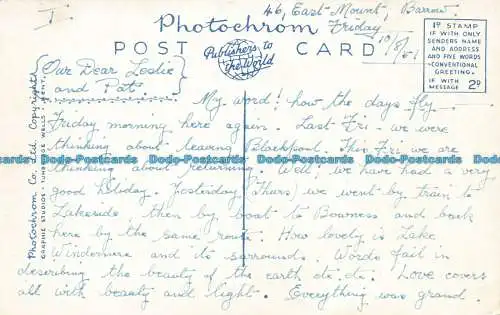 I
46, East Mount, Barrow.
Friday
10/8/51
Photochrom
POST CARD
Publishers to the World
1D STAMP
IF WITH ONLY
SENDERS NAME
AND ADDRESS
AND FIVE WORDS
CONVENTIONAL
GREETING.
IF WITH
MESSAGE 2D
Photochrom Co. Ltd. Copyright
GRAPHIC STUDIOS - TUNBRIDGE WELLS - KENT.
Our Dear Leslie
and Pat
My word! how the days fly.
Friday morning here again. Last Fri we were
thinking about leaving Blackpool. This Fri we are
Dodo-Postcards Dodo-Postcards Dodo-Postcards Dodo-Postcards Dodo-Postcards Dodo-Postcards
thinking about returning. Well! we have had a very
good holiday. Yesterday (Thurs) we went by train to
Lakeside then by boat to Bowness and back
here by the same route. How lovely is Lake
Windermere and its surrounds. Words fail in
describing the beauty of the earth etc. etc. Love covers
all with beauty and light. Everything was grand.